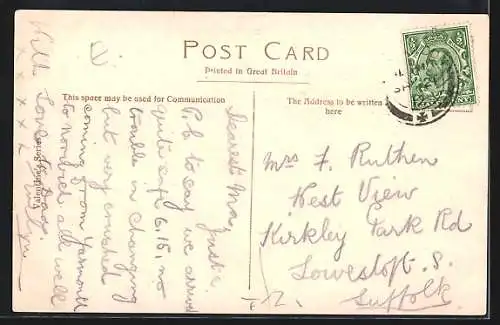 POST CARD
Printed in Great Britain
This space may be used for Communication
The Address to be written here
Valentine's Series
Dearest May,
Just a
P.C. to say we arrived
quite safe 6.15, no
trouble in changing
but very crushed
coming from Yarmouth
to Norwich all well
With Love to Dad,
x x x x x
Mrs F. Ruthen
West View
Kirkley Park Rd
Lowestoft. S.
Suffolk